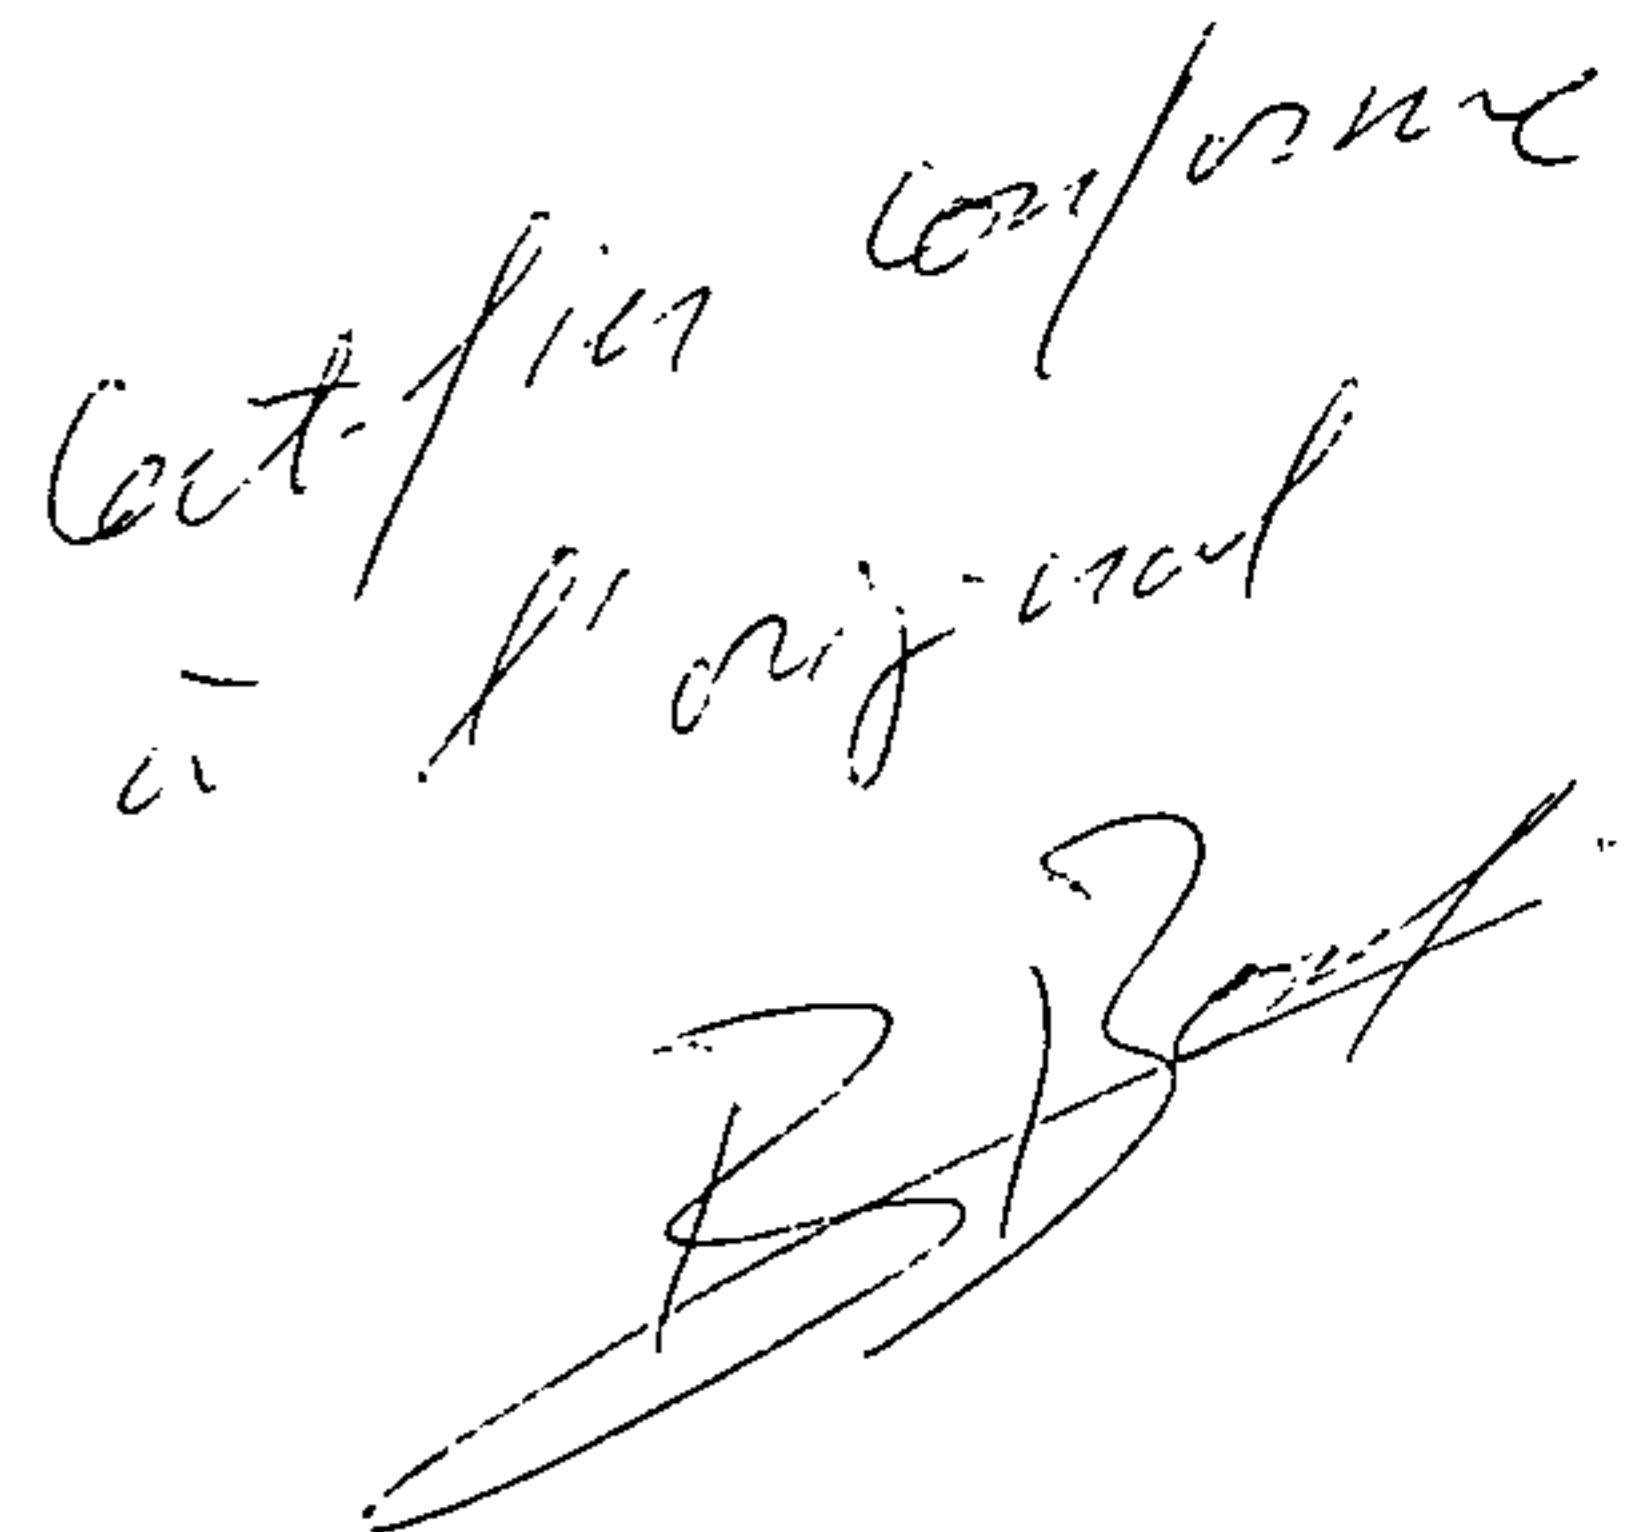 Certifiée conforme
à l'original